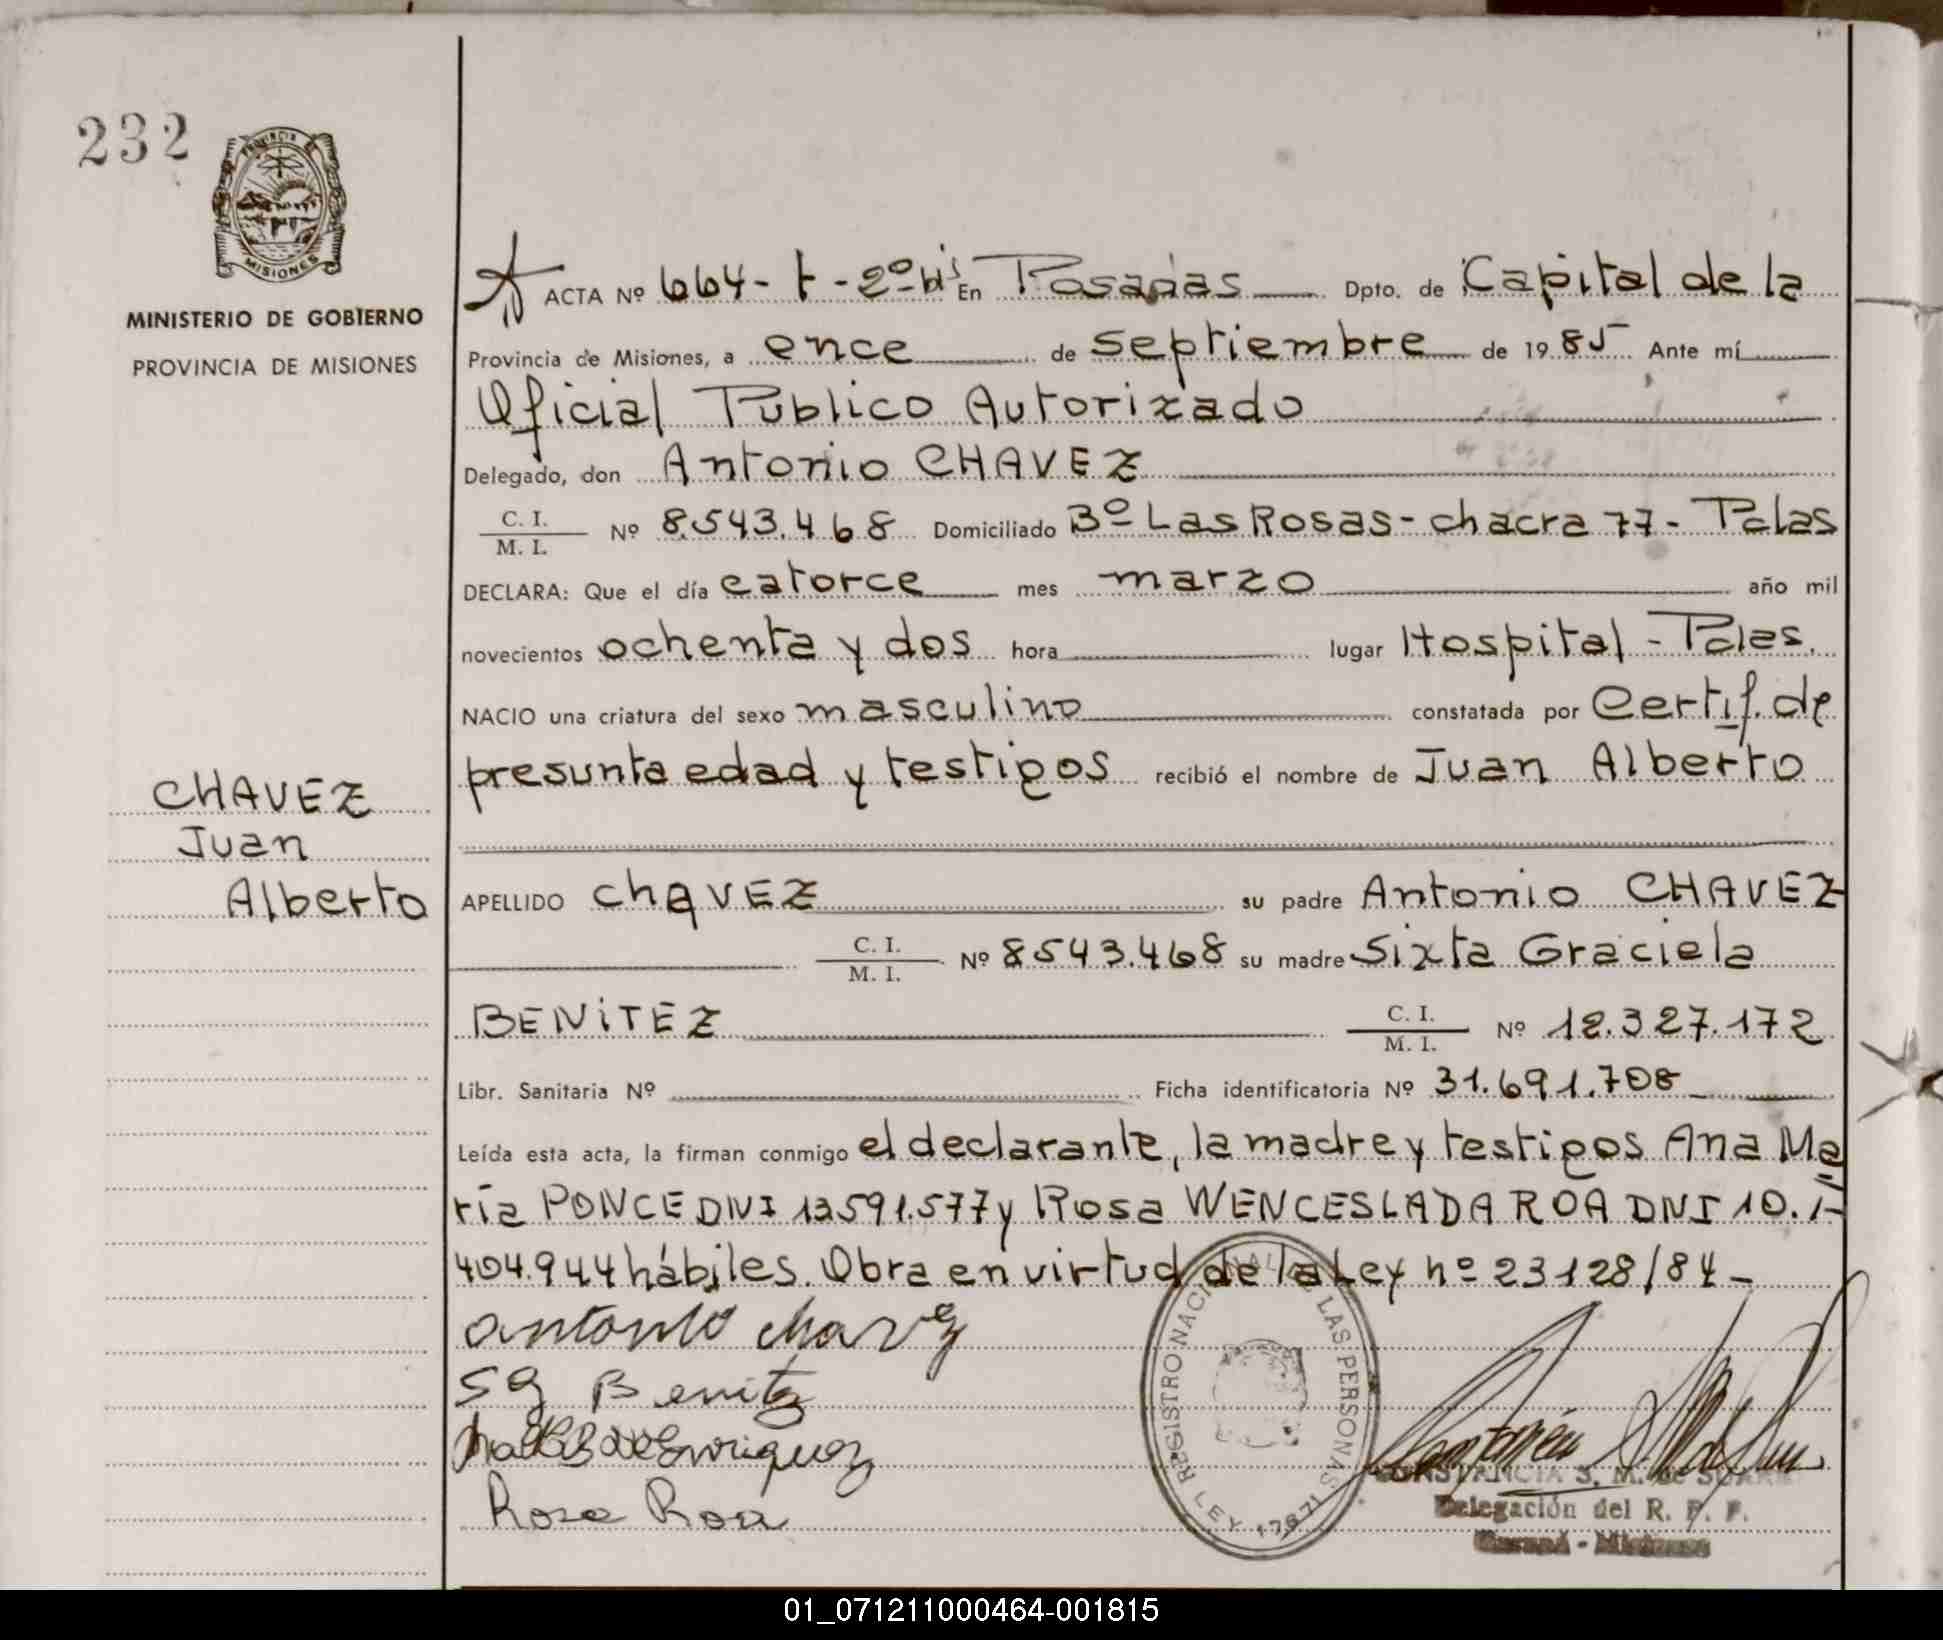 232
PROVINCIA
MISIONES
MINISTERIO DE GOBIERNO
PROVINCIA DE MISIONES
ACTA Nº 664 - t - 2º bis En Posadas Dpto. de Capital de la
Provincia de Misiones, a once de septiembre de 1985 Ante mí
Oficial Público Autorizado
Delegado, don Antonio CHAVEZ
C. I. / M. I. Nº 8.543.468 Domiciliado Bº Las Rosas - chacra 77 - Pdas
DECLARA: Que el día catorce mes marzo año mil
novecientos ochenta y dos hora lugar Hospital - Pdas.
NACIO una criatura del sexo masculino constatada por Certif. de
presunta edad y testigos recibió el nombre de Juan Alberto
CHAVEZ
Juan
Alberto
APELLIDO chaVEZ su padre Antonio CHAVEZ
C. I. / M. I. Nº 8543.468 su madre Sixta Graciela
BENiTEZ C. I. / M. I. Nº 12.327.172
Libr. Sanitaria Nº Ficha identificatoria Nº 31.691.708
Leída esta acta, la firman conmigo el declarante, la madre y testigos Ana Ma
ría PONCE DNI 12591.577 y Rosa WENCESLADA ROA DNI 10.1-
404.944 hábiles. Obra en virtud de la Ley nº 23128/84 -
Antonio Chavez
SG Benitez
de Enriquez
Rosa Roa
REGISTRO NACIONAL DE LAS PERSONAS
LEY 17671
CONSTANCIA S. M. de
Delegación del R. P. P.
- Misiones
01_071211000464-001815